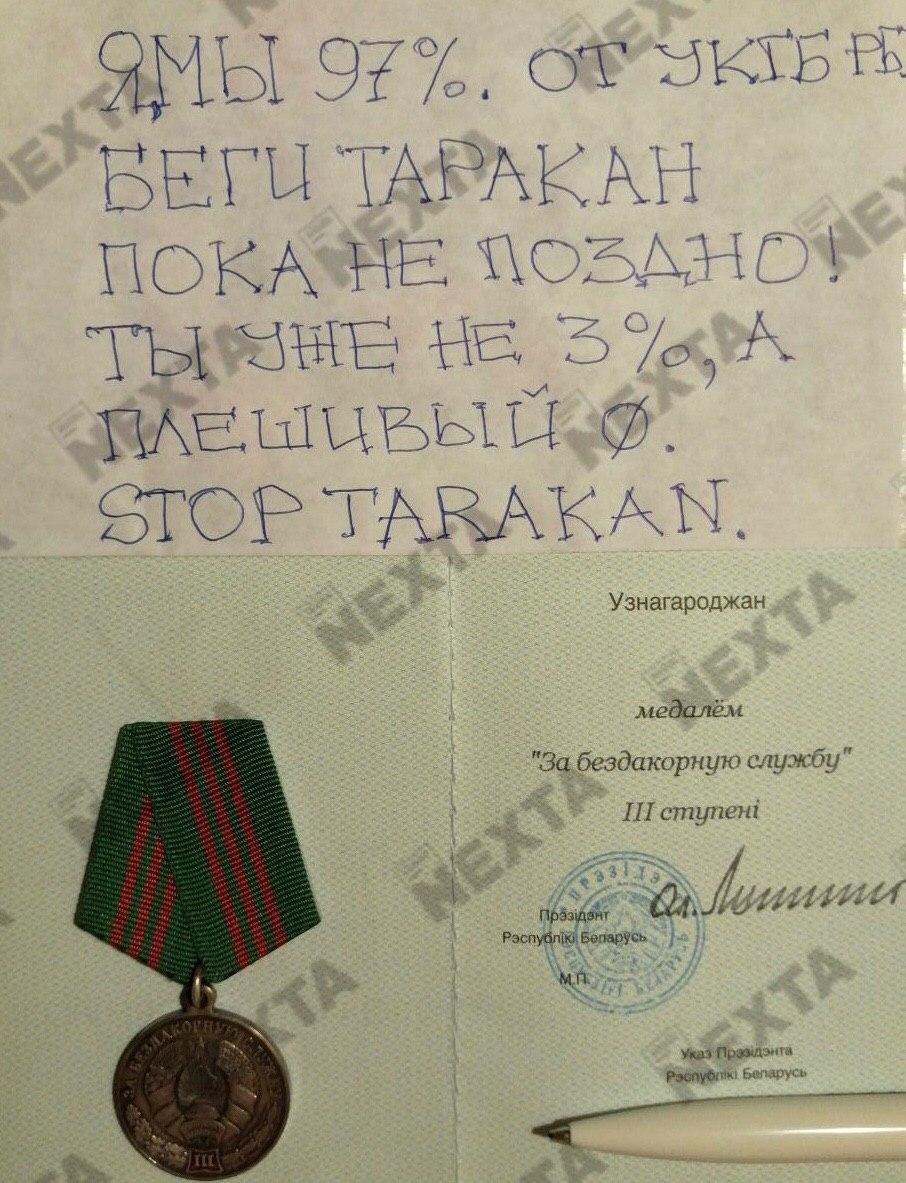 Я,МЫ 97%. ОТ УКГБ РБ
БЕГИ ТАРАКАН
ПОКА НЕ ПОЗДНО!
ТЫ УЖЕ НЕ 3%, А
ПЛЕШИВЫЙ Ø.
STOP TARAKAN.
Узнагароджан
медалём
"За бездакорную службу"
III ступені
Прэзідэнт
Рэспублікі Беларусь
М.П.
Указ Прэзідэнта
Рэспублікі Беларусь
ЗА БЕЗДАКОРНУЮ СЛУЖБУ
III
NEXTA